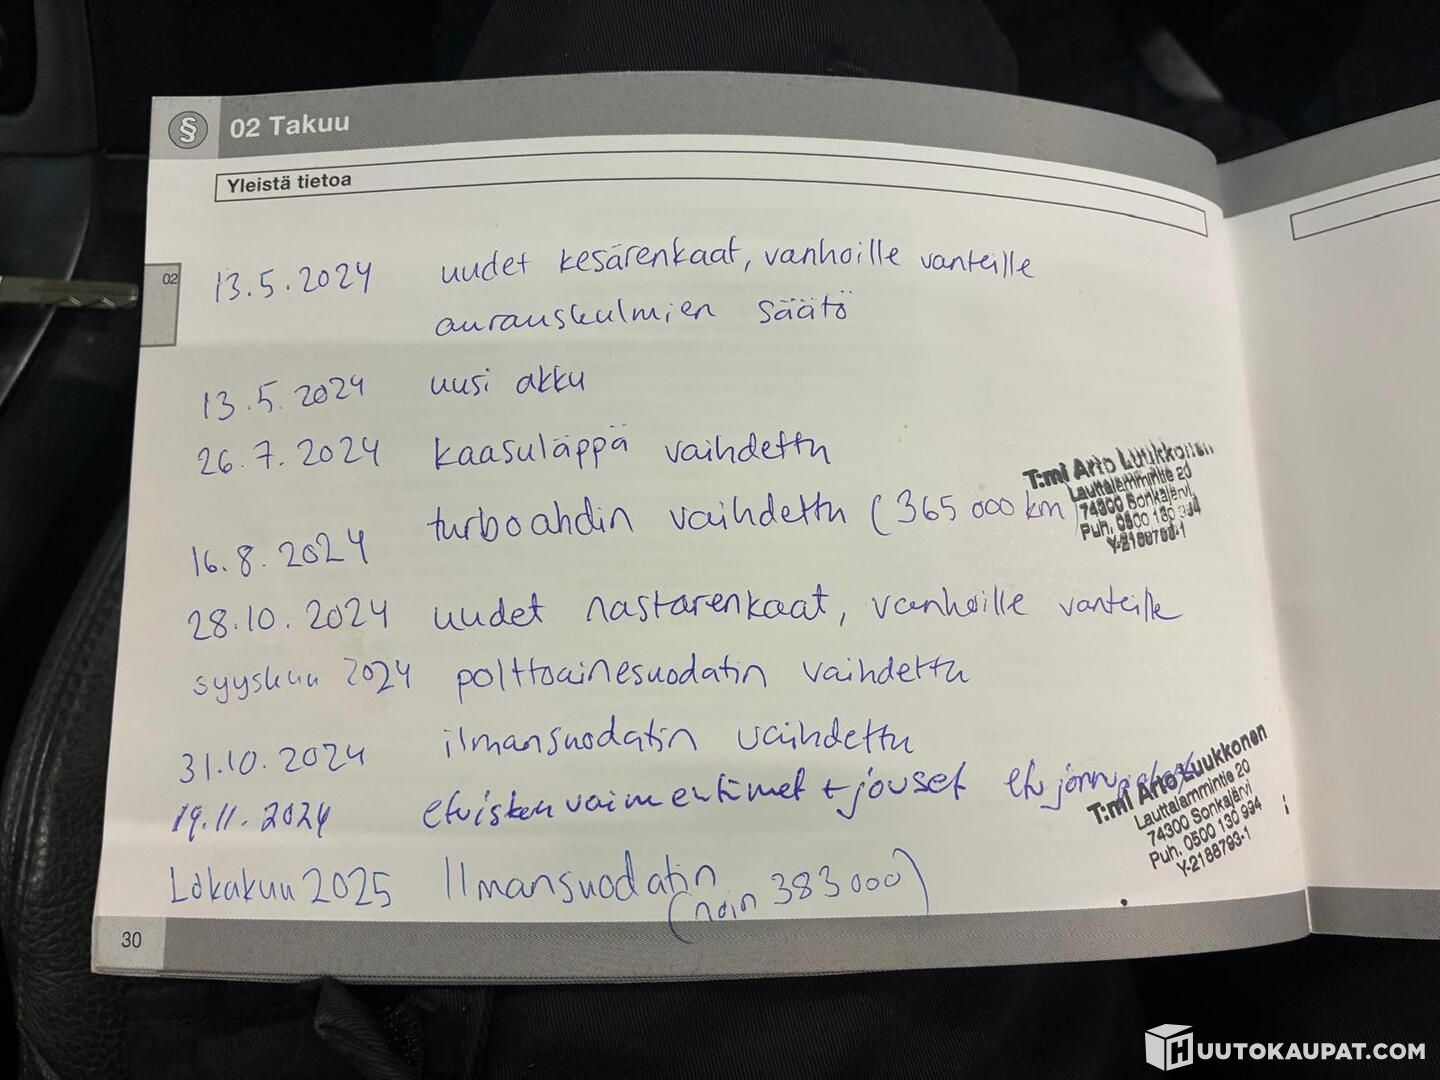 § 02 Takuu
Yleistä tietoa
02
13.5.2024 uudet kesärenkaat, vanhoille vanteille
aurauskulmien säätö
13.5.2024 uusi akku
26.7.2024 kaasuläppä vaihdettu
16.8.2024 turboahdin vaihdettu (365 000 km)
T:mi Arto Luukkonen
Lauttalammintie 20
74300 Sonkajärvi
Puh. 0500 130 994
Y-2188793-1
28.10.2024 uudet nastarenkaat, vanhoille vanteille
syyskuu 2024 polttoainesuodatin vaihdettu
31.10.2024 ilmansuodatin vaihdettu
19.11.2024 etuiskunvaimentimet + jouset etujarru
T:mi Arto Luukkonen
Lauttalammintie 20
74300 Sonkajärvi
Puh. 0500 130 994
Y-2188793-1
Lokakuu 2025 Ilmansuodatin
(noin 383 000)
30
HUUTOKAUPAT.COM